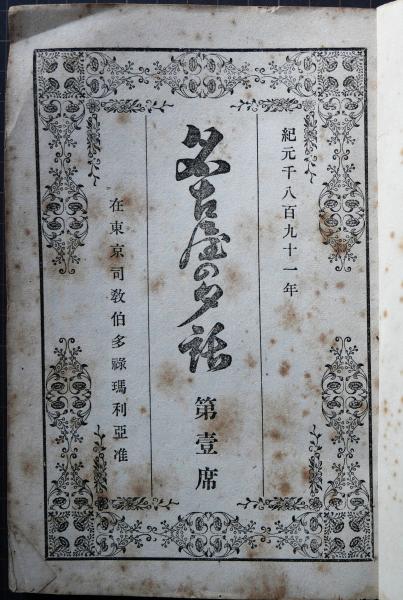 紀元千八百九十一年
名古屋の夕話 第壹席
在東京司教伯多祿瑪利亞准